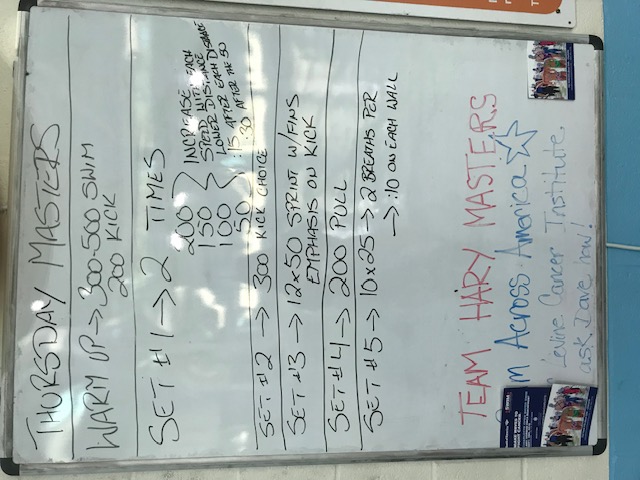 THURSDAY MASTERS
WARM UP → 300-500 SWIM
200 KICK
SET #1 → 2 TIMES
200
150
100
50
INCREASE
SPEED WITH EACH
LOWER DISTANCE
:15 AFTER EACH DISTANCE
:30 AFTER THE 50
SET #2 → 300 KICK CHOICE
SET #3 → 12x50 SPRINT W/FINS
EMPHASIS ON KICK
SET #4 → 200 PULL
SET #5 → 10x25 → 2 BREATHS PER
→ :10 ON EACH WALL
TEAM HARY MASTERS
m Across America
Levine Cancer Institute,
ask Dave how!
SWIM
MAKE WAVES TO
FIGHT CANCER.